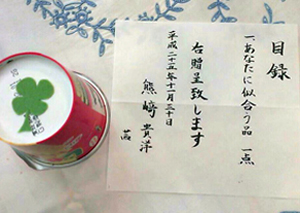 目録
一、あなたに似合う品 一点
右贈呈致します
平成二十五年十一月三十日
熊崎貴洋